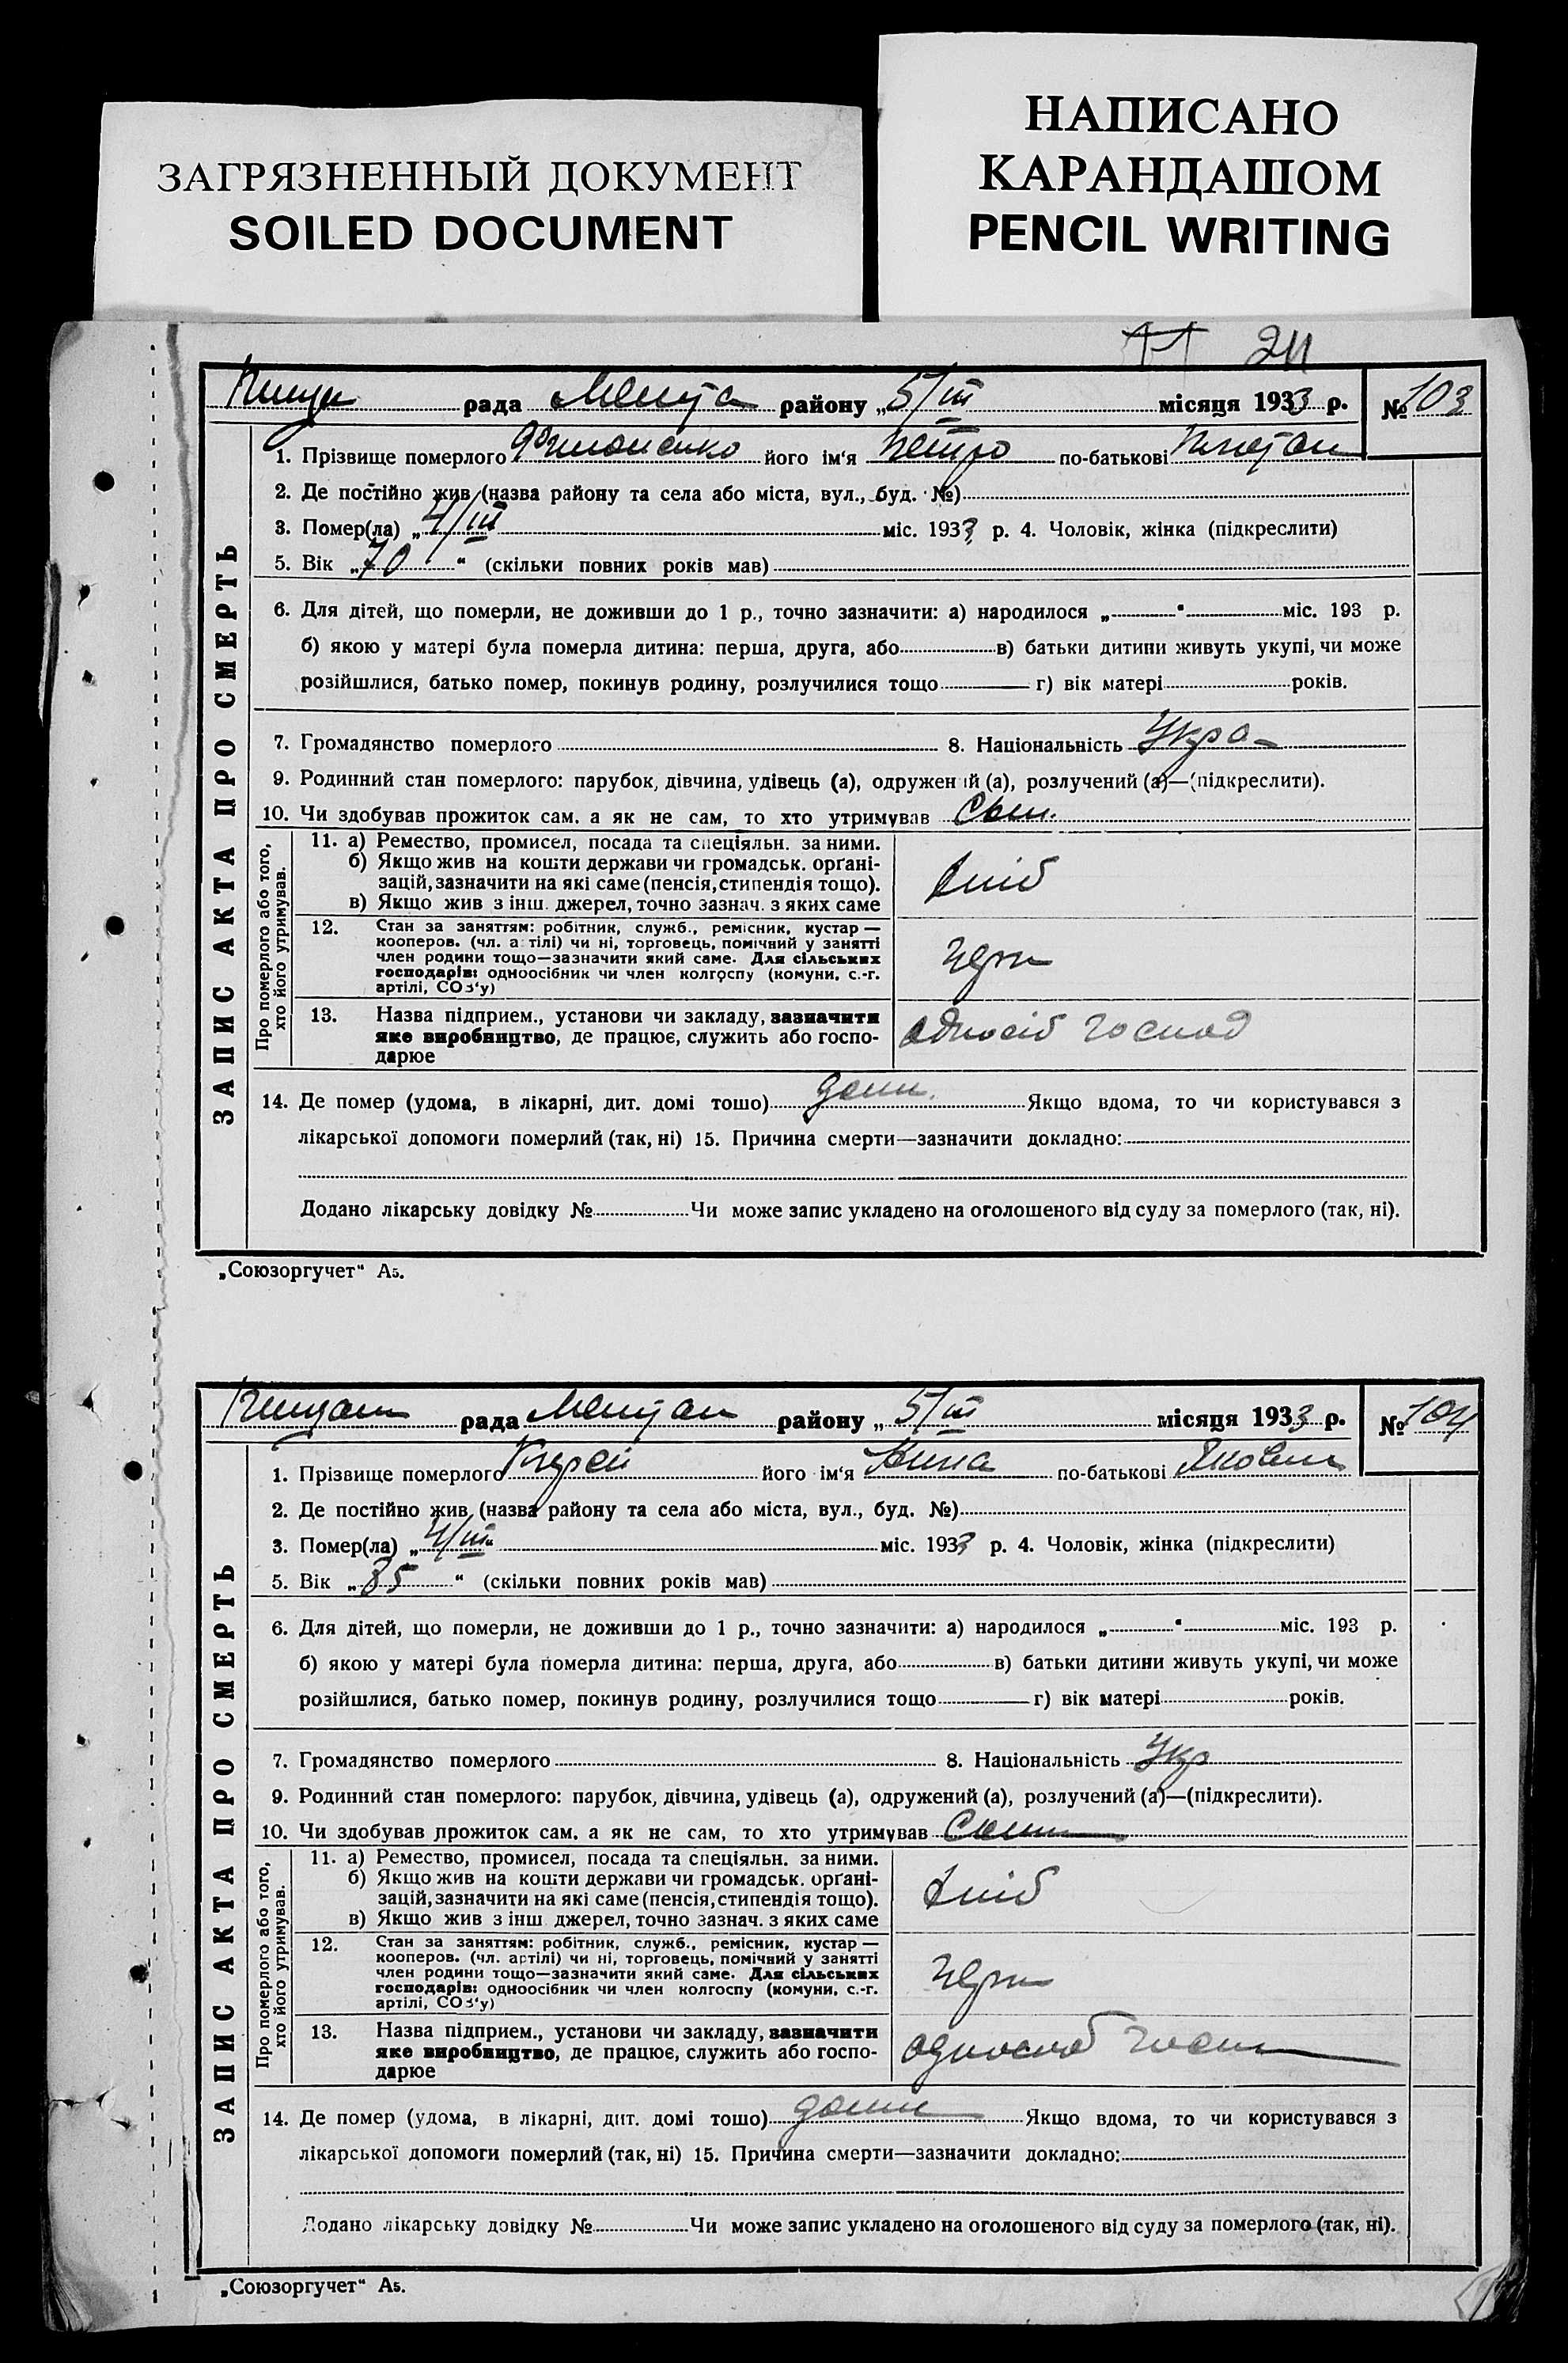 НАПИСАНО
КАРАНДАШОМ
PENCIL WRITING
ЗАГРЯЗНЕННЫЙ ДОКУМЕНТ
SOILED DOCUMENT
рада району „5/III місяця 1933 р. № 103
1. Прізвище померлого його ім‘я Петро по-батькові
2. Де постійно жив (назва району та села або міста, вул., буд. №)
3. Помер(ла) „4/III міс. 1933 р. 4. Чоловік, жінка (підкреслити)
5. Вік „70“ (скільки повних років мав)
6. Для дітей, що померли, не доживши до 1 р., точно зазначити: а) народилося „ “ міс. 193 р.
б) якою у матері була померла дитина: перша, друга, або в) батьки дитини живуть укупі, чи може
розійшлися, батько помер, покинув родину, розлучилися тощо г) вік матері років.
7. Громадянство померлого 8. Національність Укра
9. Родинний стан померлого: парубок, дівчина, удівець (а), одружений (а), розлучений (а)—(підкреслити).
10. Чи здобував прожиток сам. а як не сам, то хто утримував
11. а) Ремество, промисел, посада та спеціяльн. за ними.
б) Якщо жив на кошти держави чи громадськ. орґані-
зацій, зазначити на які саме (пенсія, стипендія тощо).
в) Якщо жив з інш. джерел, точно зазнач. з яких саме
хліб
12. Стан за заняттям: робітник, служб., ремісник, кустар —
кооперов. (чл. артілі) чи ні, торговець, помічний у занятті
член родини тощо—зазначити який саме. Для сільських
господарів: одноосібник чи член колгоспу (комуни, с.-г.
артілі, СОЗ‘у)
13. Назва підприєм., установи чи закладу, зазначити
яке виробництво, де працює, служить або госпо-
дарює
одноосіб господ
14. Де помер (удома, в лікарні, дит. домі тощо) дома Якщо вдома, то чи користувався з
лікарської допомоги померлий (так, ні) 15. Причина смерти—зазначити докладно:
Додано лікарську довідку № Чи може запис укладено на оголошеного від суду за померлого (так, ні).
ЗАПИС АКТА ПРО СМЕРТЬ
Про померлого або того,
хто його утримував.
„Союзоргучет“ А5.
рада району „5/III місяця 1933 р. № 104
1. Прізвище померлого його ім‘я Анна по-батькові Яковл
2. Де постійно жив (назва району та села або міста, вул., буд. №)
3. Помер(ла) „4/III міс. 1933 р. 4. Чоловік, жінка (підкреслити)
5. Вік „85“ (скільки повних років мав)
6. Для дітей, що померли, не доживши до 1 р., точно зазначити: а) народилося „ “ міс. 193 р.
б) якою у матері була померла дитина: перша, друга, або в) батьки дитини живуть укупі, чи може
розійшлися, батько помер, покинув родину, розлучилися тощо г) вік матері років.
7. Громадянство померлого 8. Національність Укр
9. Родинний стан померлого: парубок, дівчина, удівець (а), одружений (а), розлучений (а)—(підкреслити).
10. Чи здобував прожиток сам. а як не сам, то хто утримував
11. а) Ремество, промисел, посада та спеціяльн. за ними.
б) Якщо жив на кошти держави чи громадськ. орґані-
зацій, зазначити на які саме (пенсія, стипендія тощо).
в) Якщо жив з інш. джерел, точно зазнач. з яких саме
хліб
12. Стан за заняттям: робітник, служб., ремісник, кустар —
кооперов. (чл. артілі) чи ні, торговець, помічний у занятті
член родини тощо—зазначити який саме. Для сільських
господарів: одноосібник чи член колгоспу (комуни, с.-г.
артілі, СОЗ‘у)
13. Назва підприєм., установи чи закладу, зазначити
яке виробництво, де працює, служить або госпо-
дарює
одноосіб госп
14. Де помер (удома, в лікарні, дит. домі тощо) дома Якщо вдома, то чи користувався з
лікарської допомоги померлий (так, ні) 15. Причина смерти—зазначити докладно:
Додано лікарську довідку № Чи може запис укладено на оголошеного від суду за померлого (так, ні).
ЗАПИС АКТА ПРО СМЕРТЬ
Про померлого або того,
хто його утримував.
„Союзоргучет“ А5.